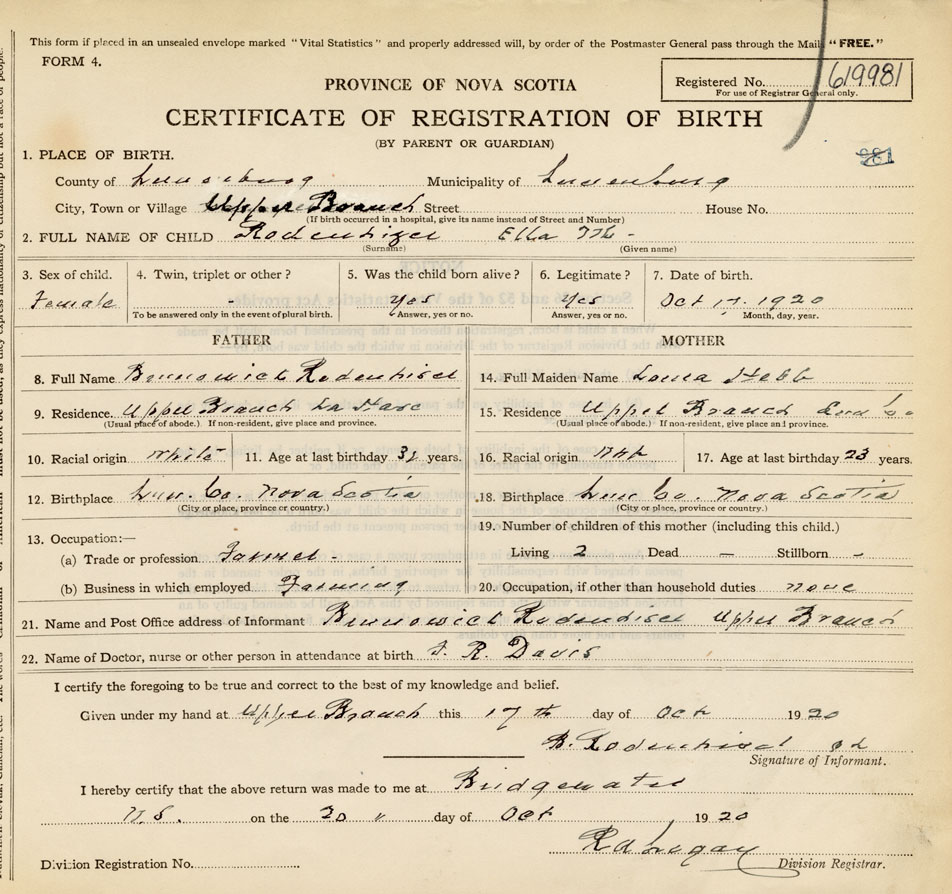 This form if placed in an unsealed envelope marked "Vital Statistics" and properly addressed will, by order of the Postmaster General pass through the Mail "FREE."
FORM 4.
PROVINCE OF NOVA SCOTIA
Registered No. 619981
For use of Registrar General only.
CERTIFICATE OF REGISTRATION OF BIRTH
(BY PARENT OR GUARDIAN)
981
1. PLACE OF BIRTH.
County of Lunenburg Municipality of Lunenburg
City, Town or Village Upper Branch Street House No.
(If birth occurred in a hospital, give its name instead of Street and Number)
2. FULL NAME OF CHILD Rodenhizer Ella
(Surname) (Given name)
3. Sex of child. 4. Twin, triplet or other? 5. Was the child born alive? 6. Legitimate? 7. Date of birth.
Female - Yes Yes Oct 17. 1920
To be answered only in the event of plural birth. Answer, yes or no. Answer, yes or no. Month, day, year.
FATHER MOTHER
8. Full Name Brunswick Rodenhiser 14. Full Maiden Name Hebb
9. Residence. Upper Branch La Have 15. Residence Upper Branch Co
(Usual place of abode.) If non-resident, give place and province. (Usual place of abode.) If non-resident, give place and province.
10. Racial origin White 11. Age at last birthday years. 16. Racial origin 17. Age at last birthday 23 years.
12. Birthplace Lun. Co. Nova Scotia 18. Birthplace Lun Co. Nova Scotia
(City or place, province or country.) (City or place, province or country.)
13. Occupation:— 19. Number of children of this mother (including this child.)
(a) Trade or profession Farmer Living 2 Dead — Stillborn -
(b) Business in which employed. Farming 20. Occupation, if other than household duties none
21. Name and Post Office address of Informant Brunswick Rodenhiser Upper Branch
22. Name of Doctor, nurse or other person in attendance at birth R. Davis
I certify the foregoing to be true and correct to the best of my knowledge and belief.
Given under my hand at Upper Branch this 17th day of Oct 1920
B. Rodenhiser
Signature of Informant.
I hereby certify that the above return was made to me at Bridgewater
N.S. on the 20 " day of Oct 1920
Division Registration No. Division Registrar.